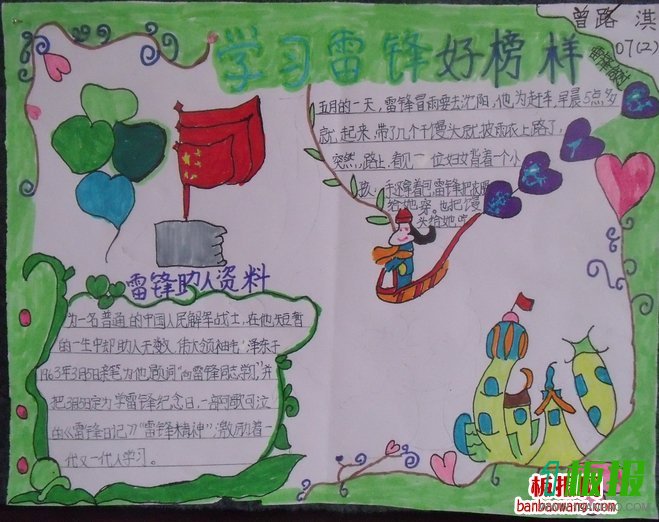 曾路淇
07(2)
学习雷锋好榜样
五月的一天,雷锋冒雨要去沈阳,他为赶车,早晨5点多
就起来,带了几个干馒头就披雨衣上路了,
突然,路上,看见一位妇女背着一个小
孩,手还牵着
给她穿。也把馒
头给她吃
雷锋助人资料
为一名普通的中国人民解军战士,在他短暂
的一生中却助人无数,伟大领袖毛泽东于
1963年3月5日亲笔为他题词“向雷锋同志学习”,并
把3月5日定为学雷锋纪念日,一部可歌可泣
的《雷锋日记》“雷锋精神”激励着一
代又一代人学习。
板报网
banbaowang.com
板报